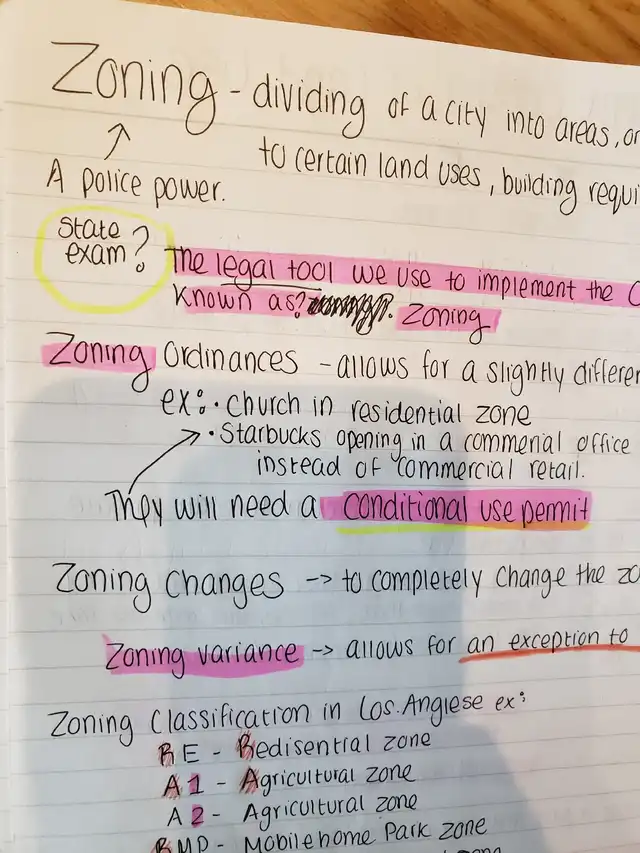 Zoning - dividing of a city into areas, or
to certain land uses, building requi
A police power.
State
exam?
The legal tool we use to implement the
Known as? Zoning
Zoning Ordinances - allows for a slightly differen
ex: • Church in residential zone
• Starbucks opening in a commerial office
instead of commercial retail.
They will need a conditional use permit
Zoning Changes -> to completely change the zo
Zoning variance -> allows for an exception to
Zoning Classification in Los. Anglese ex:
RE - Redisential zone
A1 - Agricultural zone
A2 - Agricultural zone
RMP - Mobilehome Park zone